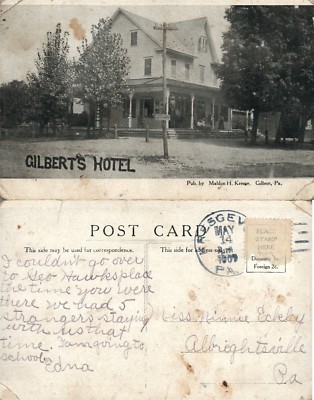 GILBERT'S HOTEL
Pub. by Mahlon H. Kresge. Gilbert, Pa.
POST CARD
This side may be used for correspondence.
This side
MAY
14
1909
PA.
PLACE
STAMP
HERE
Domestic 1c.
Foreign 2c.
I couldn't go over
to Geo Hawks place
the time you were
there we had 5
strangers staying
with us that
time. I am going to
school. Edna
Miss Minnie
Albrightsville
Pa